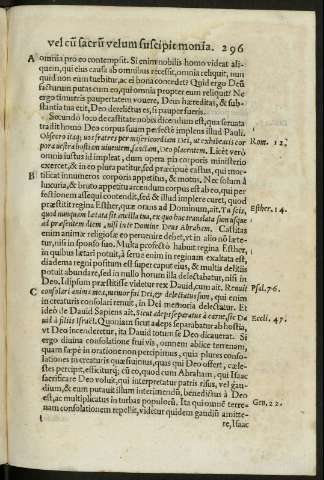 vel cũ sacrũ velum suscipit monia. 296
A omnia pro eo contempsit. Si enim nobilis homo videat ali-
quem, qui eius causa ab omnibus recessit, omnia reliquit, num
quid non eum tuebitur, ac ei bona concedet? Quid ergo Deũ
facturum putas cum eo, qui omnia propter eum reliquit? Ne
ergo timueris paupertatem vouere, Deus hæreditas, & sub-
stantia tua erit, Deo derelictus es, si pauper fueris.
Secundò loco de castitate nobis dicendum est, qua seruata
tradit homo Deo corpus suum perfectè implens illud Pauli.
Obsecro itaq; vos fratres per misericordiam Dei, vt exhibeatis cor Rom. 12.
pora vestra hostiam viuentem, sanctam, Deo placentem. Licèt verò
omnis iustus id impleat, dum opera pia corporis ministerio
exercet, & in eo plura patitur, sed præcipuè castus, qui mor-
B tificat innumeros corporis appetitus, & motus, Nec solum à
luxuria, & bruto appetitu arcendum corpus est ab eo, qui per
fectionem assequi contendit, sed & illud implere curet, quod
præstitit regina Esther, quæ orans ad Dominum, ait. Tu scis, Esther. 14.
quòd nunquam lætata sit ancilla tua, ex quo huc translata sum vsque
ad præsentem diem, nisi in te Domine Deus Abraham. Castitas
enim animæ religiosæ eo peruenire debet, vt in alio nõ læte-
tur, nisi in sponso suo. Multa profectò habuit regina Esther,
in quibus lætari potuit, à serua enim in reginam exaltata est,
diadema regni positum est super caput eius, & multis delitiis
potuit abundare, sed in nullo horum illa delectabatur, nisi in
Deo. Id ipsum præstitisse videtur rex Dauid, cum ait. Renuit Psal. 76.
C consolari anima mea, memor fui Dei, & delectatus sum, qui enim
in creaturis consolari renuit, in Dei memoria delectatur. Et
ideò de Dauid Sapiens ait. Sicut adeps separatus à carne, sic Da Eccli. 47.
uid à filiis Israël. Quoniam sicut adeps separabatur ab hostia,
vt Deo incenderetur, ita Dauid totum se Deo dicauerat. Si
ergo diuina consolatione frui vis, omnem abiice terrenam,
quam sæpè in oratione non percipimus, quia plures conso-
lationes ex creaturis quæsiuimus, quas qui Deo offert, cæle-
stes percipit, efficiturq; cũ eo, quod cum Abraham, qui Isaac
sacrificare Deo voluit, qui interpretatur patris risus, vel gau-
dium, & eum putauit illum interimendũ, benedictus à Deo
est, ac multiplicatus in turbas populorũ. Ita qui omnẽ terre- Gen. 22.
nam consolationem repellit, videtur quidem gaudiũ amitte-
re, Isaac